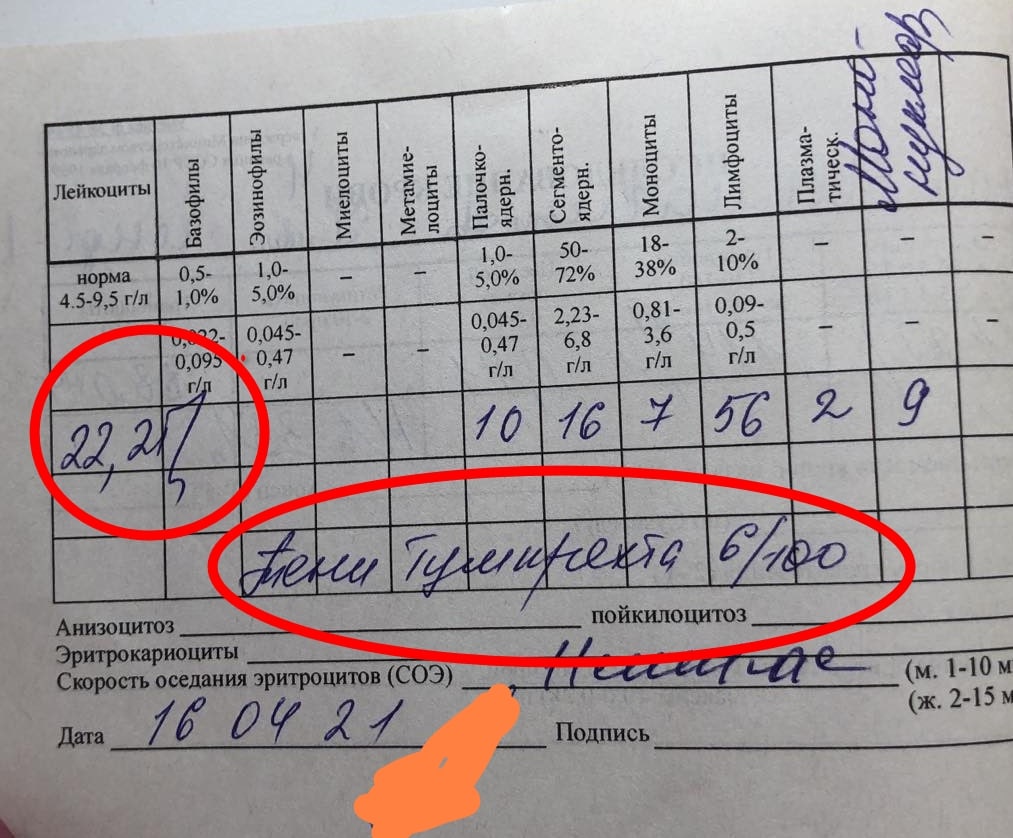 Лейкоциты Базофилы Эозинофилы Миелоциты Метамие-лоциты Палочко-ядерн. Сегменто-ядерн. Моноциты Лимфоциты Плазма-тическ. Моно-нуклеар,
норма 4.5-9,5 г/л 0,5-1,0% 1,0-5,0% – – 1,0-5,0% 50-72% 18-38% 2-10% – – –
0,022-0,095 г/л 0,045-0,47 г/л – – 0,045-0,47 г/л 2,23-6,8 г/л 0,81-3,6 г/л 0,09-0,5 г/л – – –
22,21 10 16 7 56 2 9
Тени Гумпрехта 6/100
Анизоцитоз пойкилоцитоз
Эритрокариоциты
Скорость оседания эритроцитов (СОЭ) (м. 1-10 м
(ж. 2-15 м
Дата 16 04 21 Подпись